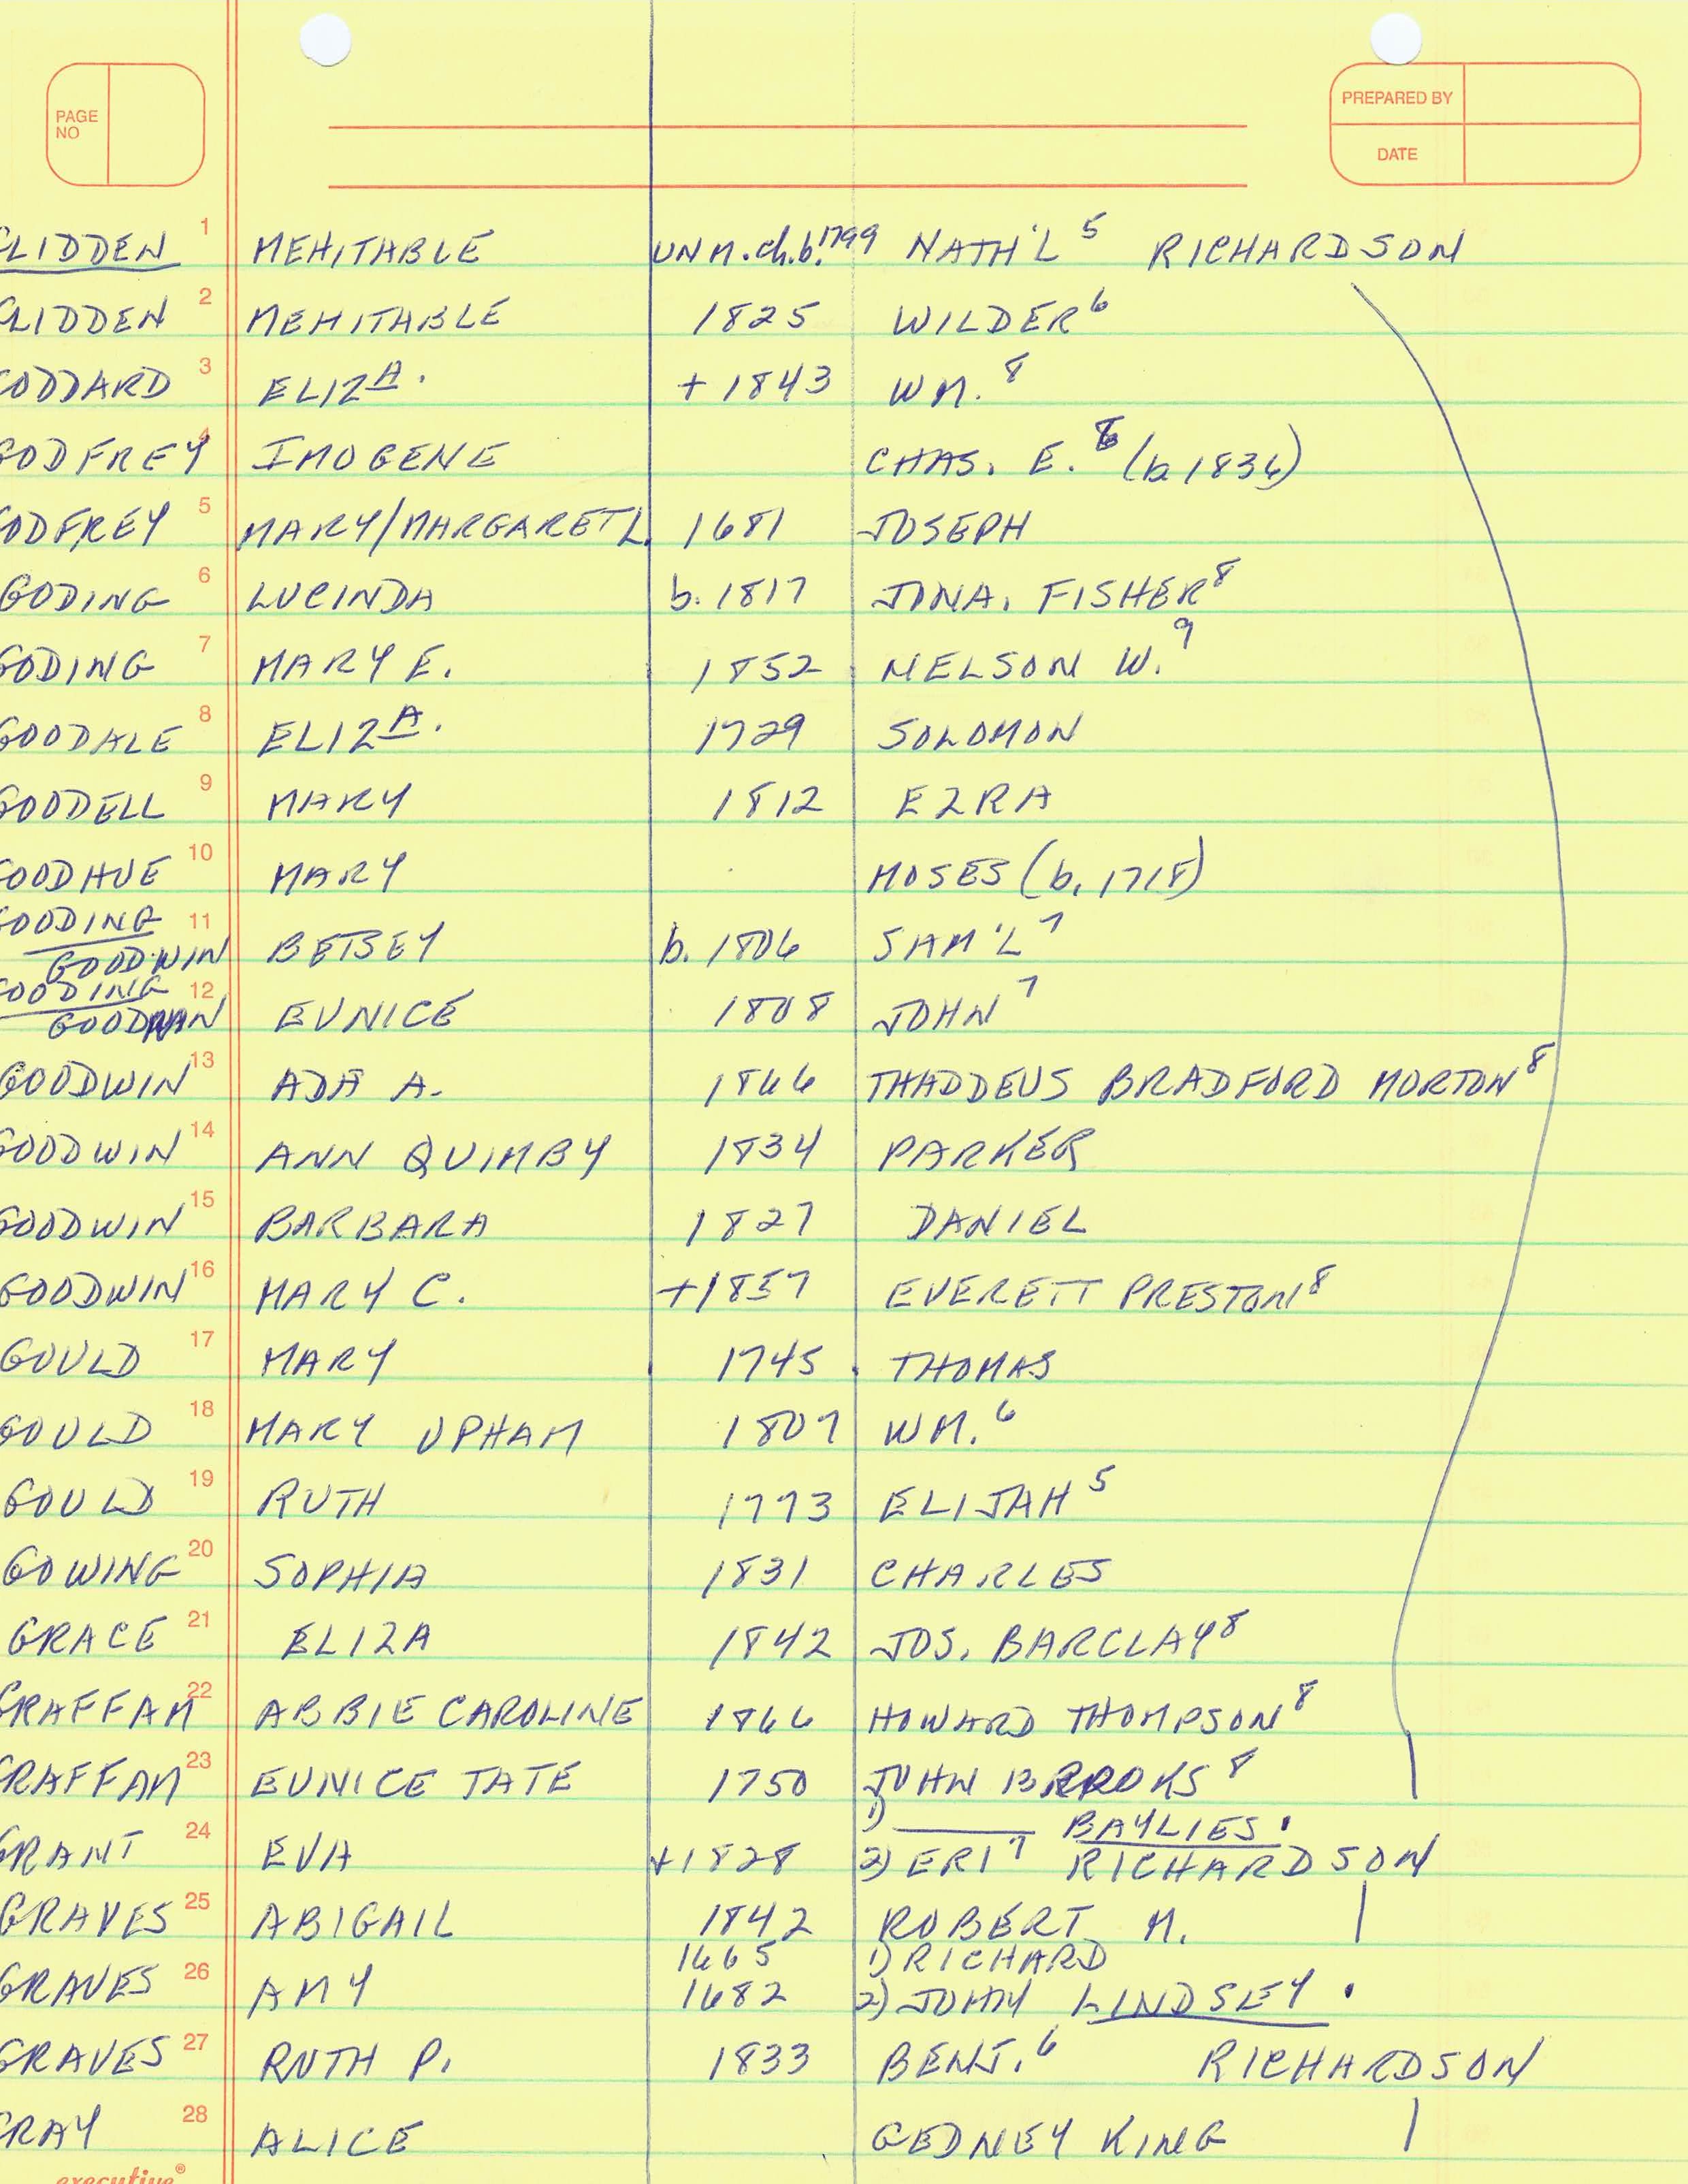 PAGE NO
PREPARED BY
DATE
LIDDEN 1 MEHITABLE UNM. ch.b. 1799 NATH'L 5 RICHARDSON
LIDDEN 2 MEHITABLE 1825 WILDER 6
ODDARD 3 ELIZA. + 1843 WM. 8
GODFREY 4 IMOGENE CHAS. E. 8 (b 1836)
ODFREY 5 MARY/MARGARET L. 1681 JOSEPH
GODING 6 LUCINDA b. 1817 JONA. FISHER 8
GODING 7 MARY E. 1852 NELSON W. 9
GOODALE 8 ELIZA. 1729 SOLOMON
GOODELL 9 MARY 1812 EZRA
OODHUE 10 MARY MOSES (b. 1718)
GOODING 11
GOODWIN BETSEY b. 1806 SAM'L 7
OODING 12
GOODMAN EUNICE 1808 JOHN 7
GOODWIN 13 ADA A. 1866 THADDEUS BRADFORD MORTON 8
GOODWIN 14 ANN QUIMBY 1834 PARKER
GOODWIN 15 BARBARA 1827 DANIEL
GOODWIN 16 MARY C. +1857 EVERETT PRESTON 8
GOULD 17 MARY 1745 THOMAS
GOULD 18 MARY UPHAM 1807 WM. 6
GOULD 19 RUTH 1773 ELIJAH 5
GOWING 20 SOPHIA 1831 CHARLES
GRACE 21 ELIZA 1842 JOS. BARCLAY 8
GRAFFAM 22 ABBIE CAROLINE 1866 HOWARD THOMPSON 8
GRAFFAM 23 EUNICE TATE 1750 JOHN BROOKS 8
1) ______ BAYLIES.
GRANT 24 EVA +1828 2) ERI 7 RICHARDSON
GRAVES 25 ABIGAIL 1842 ROBERT M.
1665 1) RICHARD
GRAVES 26 AMY 1682 2) JOHN LINDSEY .
GRAVES 27 RUTH P. 1833 BENJ. 6 RICHARDSON
RAY 28 ALICE GEDNEY KING
executive®